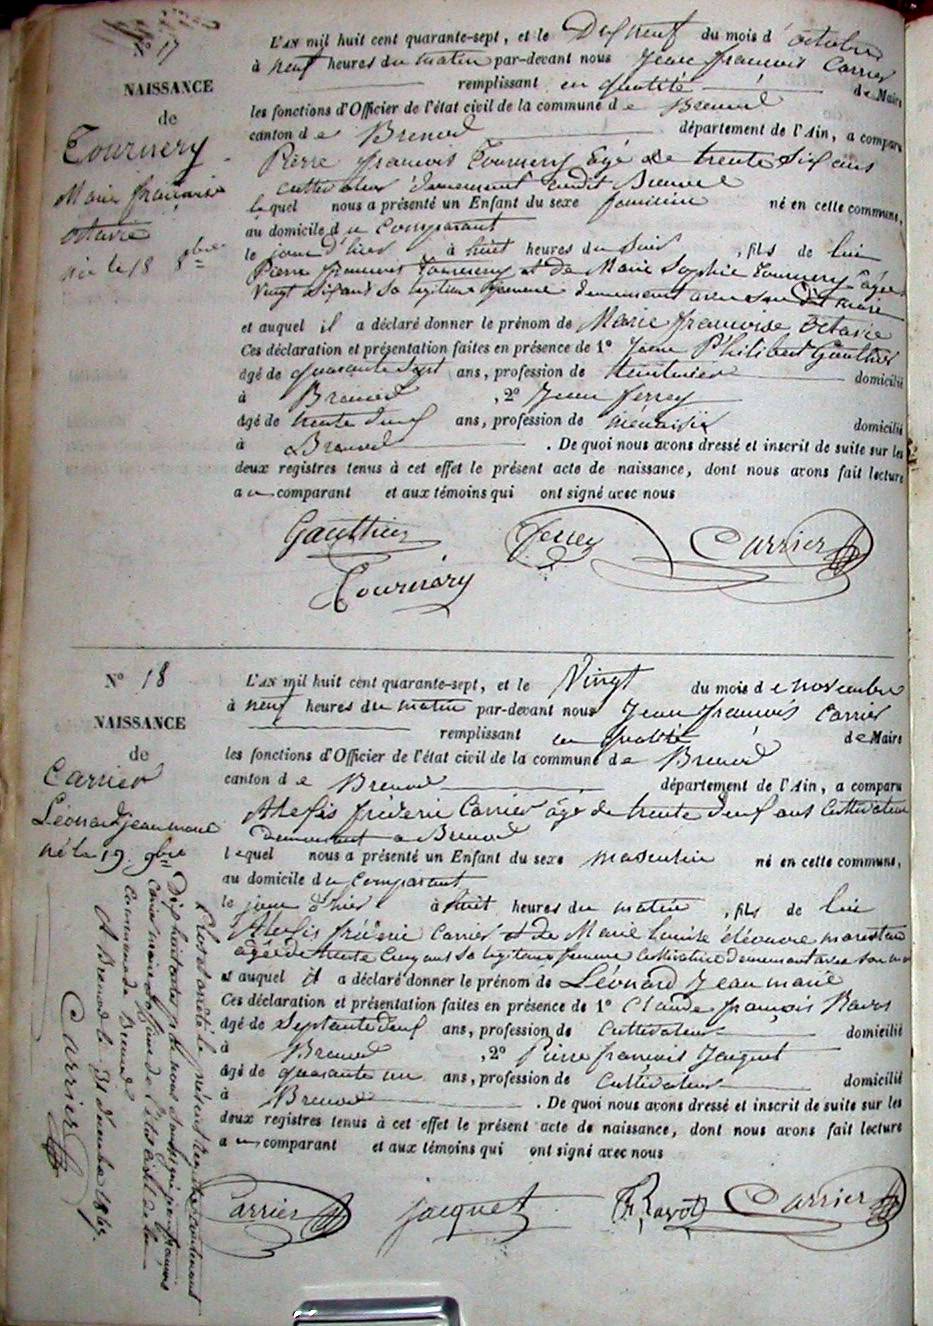 N° 17
NAISSANCE
de
Tournery
Marie françoise
octavie
née le 18 8bre
L'AN mil huit cent quarante-sept, et le Dix neuf du mois d'octobre
à neuf heures du matin par-devant nous Jean françois Carrier
remplissant en qualité de Maire
les fonctions d'Officier de l'état civil de la commune de Brenod
canton de Brenod département de l'Ain, a comparu
Pierre françois Tournery âgé de trente six ans
cultivateur demeurant audit Brenod
lequel nous a présenté un Enfant du sexe féminin né en cette commune,
au domicile du Comparant
le jour d'hier à huit heures du soir, fils de lui
Pierre françois Tournery et de Marie Sophie Tournery âgée
Vingt six ans sa légitime femme demeurant avec son dit mari
et auquel il a déclaré donner le prénom de Marie françoise octavie
Ces déclaration et présentation faites en présence de 1° Jean Philibert Gauthier
âgé de quarante sept ans, profession de domicilié
à Brenod, 2° Jean ferrey
âgé de trente neuf ans, profession de domicilié
à Brenod. De quoi nous avons dressé et inscrit de suite sur les
deux registres tenus à cet effet le présent acte de naissance, dont nous avons fait lecture
au comparant et aux témoins qui ont signé avec nous
Gauthier ferrey Carrier
Tournery
N° 18
NAISSANCE
de
Carrier
Léonard jean marie
né le 19 9bre
L'AN mil huit cent quarante-sept, et le Vingt du mois de novembre
à neuf heures du matin par-devant nous Jean françois Carrier
remplissant en qualité de Maire
les fonctions d'Officier de l'état civil de la commune de Brenod
canton de Brenod département de l'Ain, a comparu
Alexis fréderic Carrier âgé de trente neuf ans Cultivateur
demeurant a Brenod
lequel nous a présenté un Enfant du sexe masculin né en cette commune,
au domicile du Comparant
le jour d'hier à huit heures du matin, fils de lui
Alexis fréderic Carrier et de Marie louise éléonore
âgée de trente cinq ans sa légitime femme cultivatrice demeurant avec son mari
et auquel il a déclaré donner le prénom de Léonard Jean marie
Ces déclaration et présentation faites en présence de 1° Claude françois Ravot
âgé de septante neuf ans, profession de cultivateur domicilié
à Brenod, 2° Pierre françois Jacquet
âgé de quarante un ans, profession de cultivateur domicilié
à Brenod. De quoi nous avons dressé et inscrit de suite sur les
deux registres tenus à cet effet le présent acte de naissance, dont nous avons fait lecture
au comparant et aux témoins qui ont signé avec nous
Carrier jacquet Ravot Carrier
Clos et arrêté le présent registre contenant
Dix huit actes par nous soussigné jean françois
Carrier maire officier de l'état civil de la
Commune de Brenod
A Brenod le 31 décembre 1847
Carrier